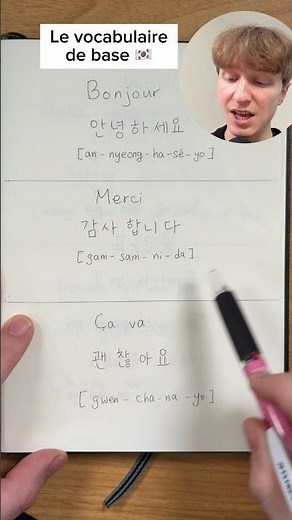 Le vocabulaire
de base 🇰🇷
Bonjour
안녕하세요
[an-nyeong-ha-sé-yo]
Merci
감사 합니다
[gam-sam-ni-da]
Ça va
괜찮아요
[gwen-cha-na-yo]